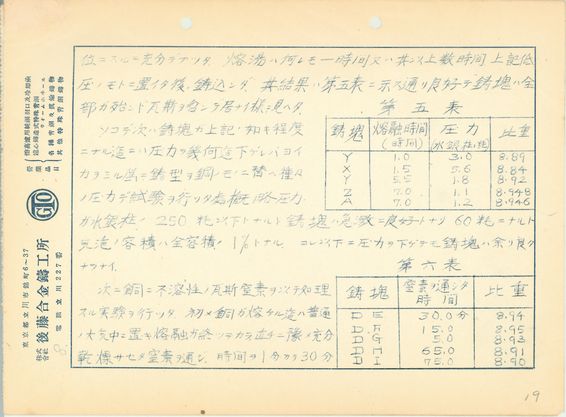 位ニスルニ充分ラナリタ 熔湯ハ何レモ一時間又ハ其レ以上数時間上記低
圧ノモトニ置イタ後、鋳込ンダ 其結果ハ第五表ニ示ス通リ良好デ鋳塊ハ全
部ガ殆ンド瓦斯ヲ含ンデ居ナイ様ニ見ヘタ
第五表
鋳塊 熔融時間(時間) 圧力(水銀柱粍) 比重
Y 1.0 3.0 8.89
X 1.5 5.6 8.84
Y 5.5 1.8 8.92
Z 7.0 1.1 8.948
A 7.0 1.2 8.946
ソコデ次ハ鋳塊ガ上記ノ如キ程度
ニナル迄ニハ圧力ヲ幾何迄下ゲレバヨイ
カヲミル為ニ鋳型ヲ銅ノモノニ替ヘ種々
ノ圧力デ試験ヲ行リタ 概略圧力
ガ水銀柱ノ250粍以下トナルト鋳塊ハ急激ニ良好トナリ 60粍ニナルト
気泡ノ容積ハ全容積ノ1%トナル コレ以下ニ圧力ヲ下ゲテモ鋳塊ハ余リ良ク
ナラナイ。
第六表
鋳塊 窒素ヲ通シタ時間 比重
D E 30.0分 8.94
D F 15.0 8.95
D G 5.0 8.93
D H 65.0 8.91
D I 75.0 8.90
次ニ銅ニ不溶性ノ瓦斯窒素ヲ以テ処理
スル実験ヲ行リタ 初メ銅ガ熔ケル迄ハ普通
ノ大気中ニ置キ熔融ガ終ッテカラ直チニ豫メ充分
乾燥サセタ窒素ヲ通シ、時間ヲ1分カラ30分
営業品目
各種青銅及黄銅鋳物
其他特殊青銅鋳物
GTO
株式会社 後藤合金鑄工所
東京都立川市錦町6~37
電話立川227番
19